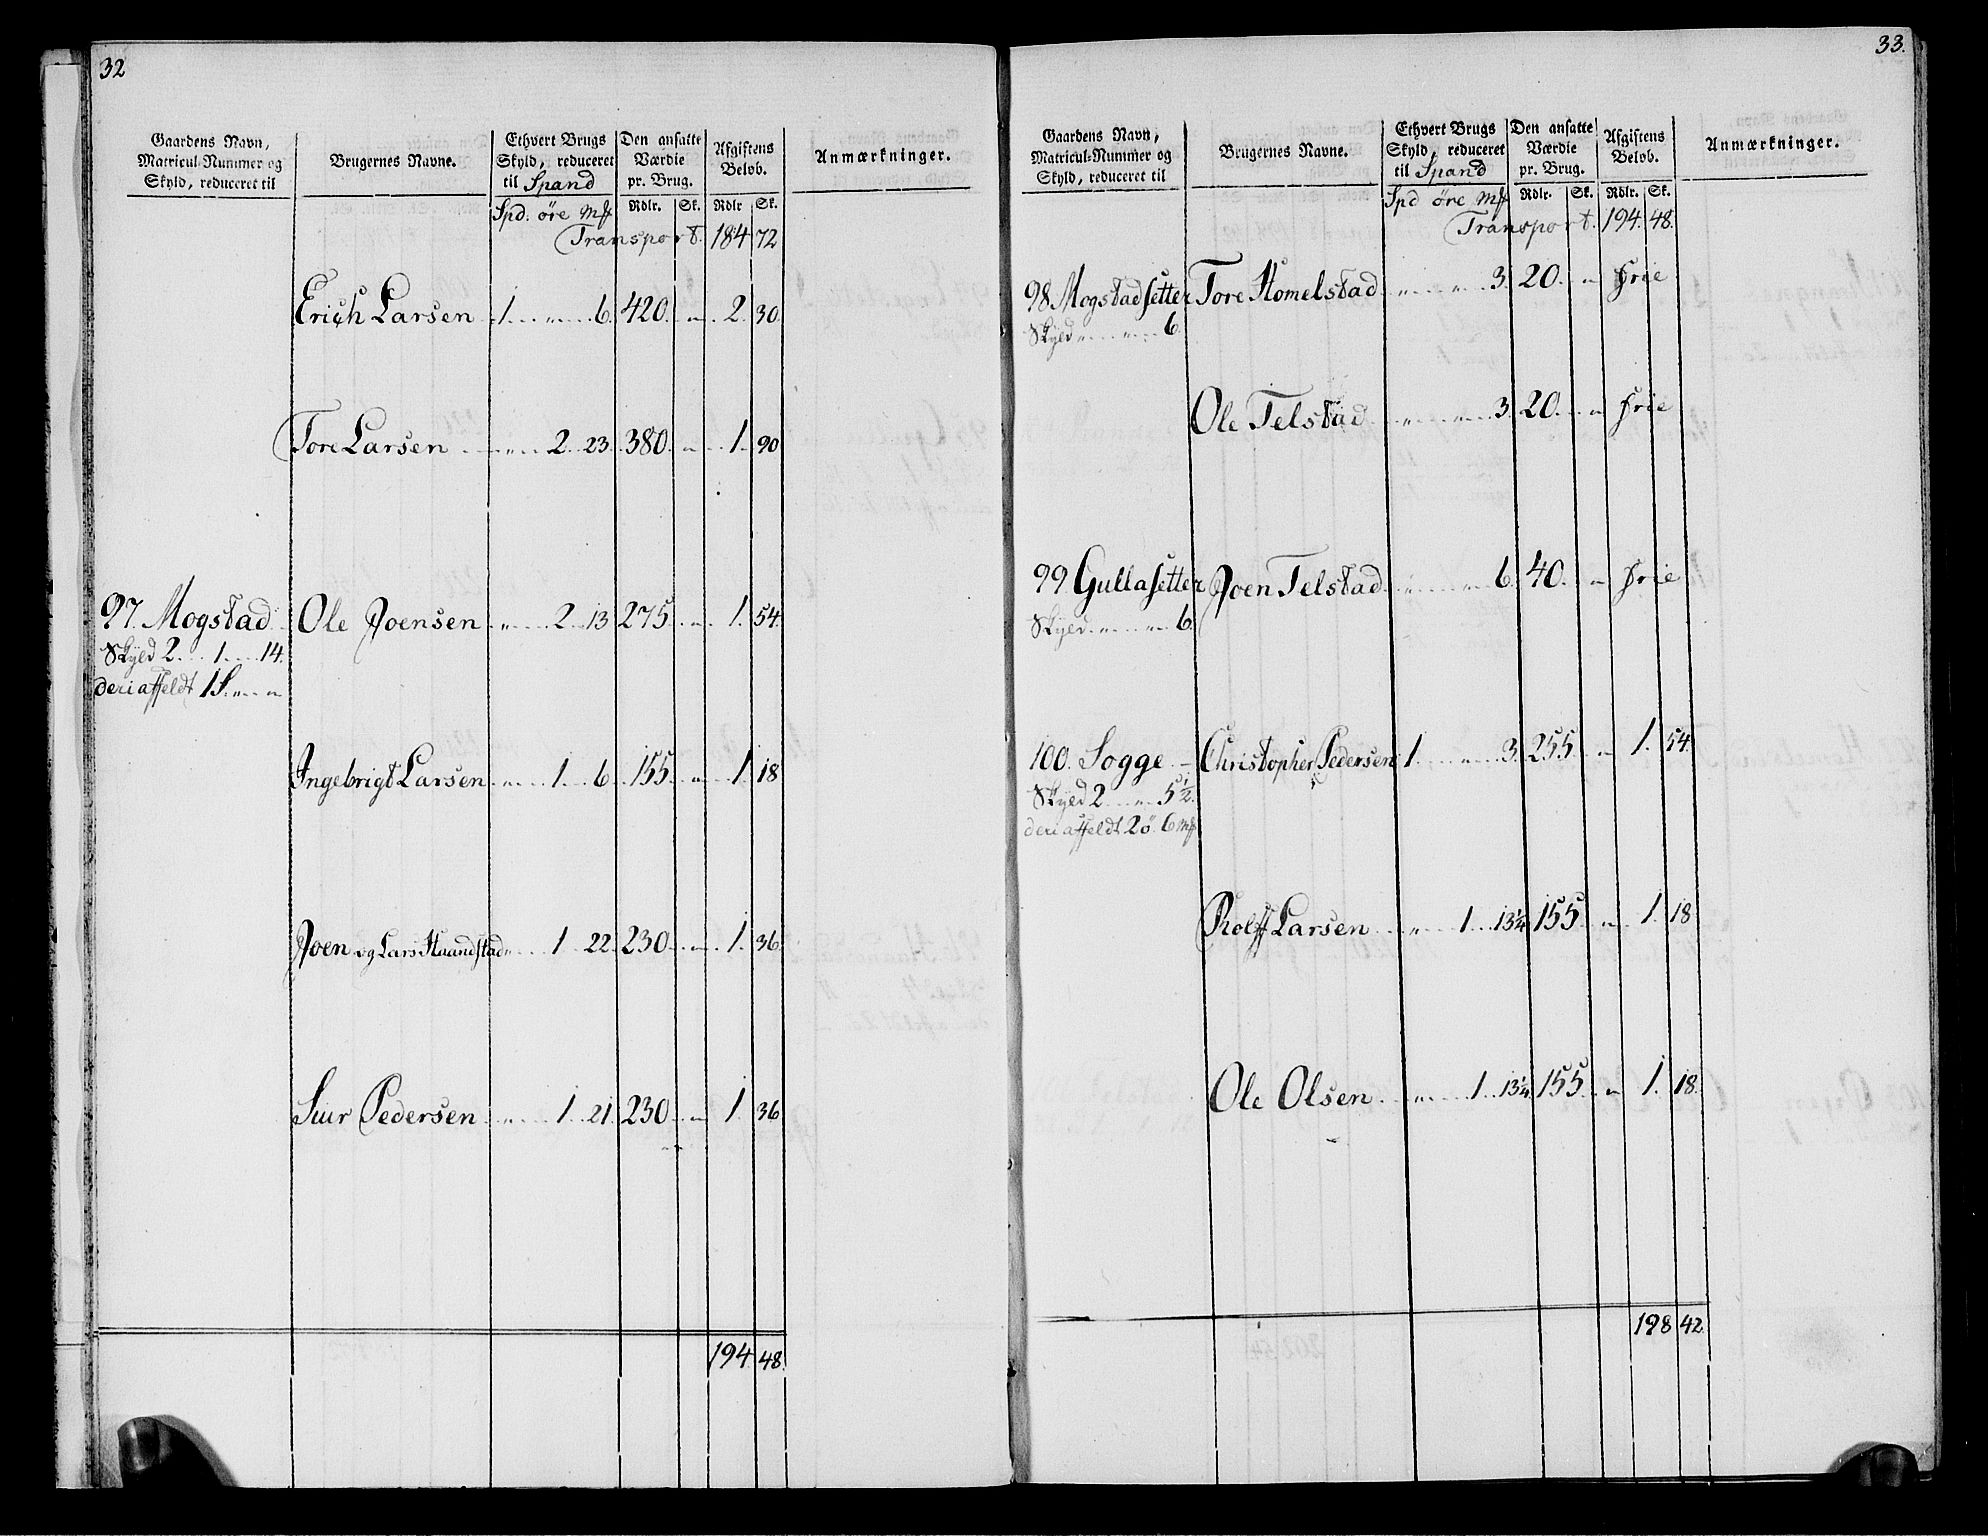 32
Gaardens Navn,
Matricul-Nummer og
Skyld, reduceret til
Brugernes Navne.
Ethvert Brugs
Skyld, reduceret
til Spand
Den ansatte
Værdie
pr. Brug.
Afgiftens
Beløb.
Anmærkninger.
Spd: øre mk Rdlr. Sk. Rdlr Sk.
Transport. 184 72
Erich Larsen 1 " 6. 420. " 2. 30.
Tore Larsen " 2. 23. 380. " 1. 90
97. Mogstad Ole Joensen " 2 13 275. " 1. 54.
Skyld 2 1 14.
deri affeldt 1 S. " "
Ingebrigt Larsen " 1 6 155. " 1 18
Joen og Lars Haandstad " 1 22. 230. " 1. 36.
Siur Pedersen " 1 21. 230 " 1. 36
194 48.
33.
Gaardens Navn,
Matricul-Nummer og
Skyld, reduceret til
Brugernes Navne.
Ethvert Brugs
Skyld, reduceret
til Spand
Den ansatte
Værdie
pr. Brug.
Afgiftens
Beløb.
Anmærkninger.
Spd øre mk Rdlr. Sk. Rdlr. Sk.
Transport. 194. 48.
98 Mogstadsetter Tore Homelstad " " 3. 20. " frie
Skyld " " 6.
Ole Telstad " " 3. 20. " frie
99 Gullasetter Joen Telstad " " 6. 40. " frie
Skyld " " 6.
100. Sogge Christopher Pedersen 1. " 3. 255. " 1. 54.
Skyld 2 " 5½.
deri affeldt 2ö. 6 mk
Rolff Larsen " 1 13¼ 155 " 1. 18
Ole Olsen " 1 13¼ 155 " 1. 18.
198 42